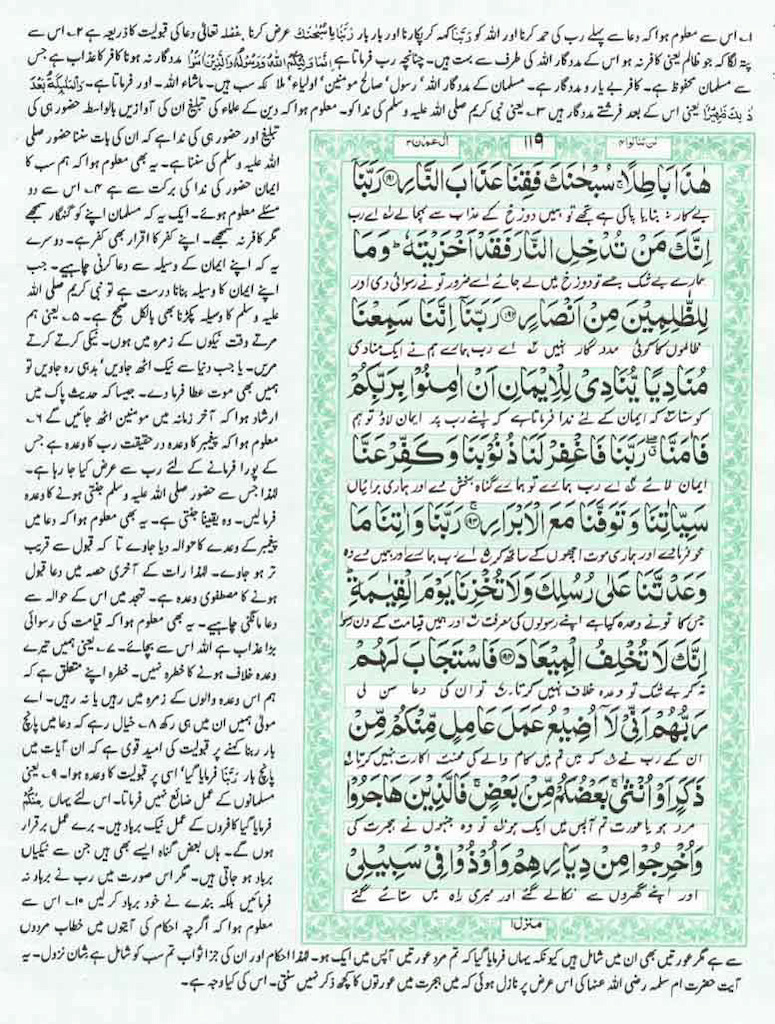 ۱۔ اس سے معلوم ہوا کہ دعا سے پہلے رب کی حمد کرنا اور اللہ کو رَبَّنَا کہہ کر پکارنا اور بار بار رَبَّنَا یا سُبْحٰنَكَ عرض کرنا۔ بفضلہ تعالیٰ دعا کی قبولیت کا ذریعہ ہے ۲۔ اس سے
پتہ لگا کہ جو ظالم یعنی کافر نہ ہو اس کے مددگار اللہ کی طرف سے بہت ہیں۔ چنانچہ رب فرماتا ہے اِنَّمَا وَلِیُّکُمُ اللّٰهُ وَرَسُوْلُهٗ وَالَّذِیْنَ اٰمَنُوْا مددگار نہ ہونا کافر کا عذاب ہے جس
سے مسلمان محفوظ ہے۔ کافر بے یار و مددگار ہے۔ مسلمان کے مددگار اللہ' رسول' صالح مومنین' اولیاء' ملائکہ سب ہیں۔ ماشاء اللہ۔ اور فرماتا ہے۔ وَالْمَلٰٓئِكَةُ بَعْدَ
ذٰلِكَ ظَهِیْرٌ یعنی اس کے بعد فرشتے مددگار ہیں ۳۔ یعنی نبی کریم صلی اللہ علیہ وسلم کی ندا کو۔ معلوم ہوا کہ دین کے علماء کی تبلیغ ان کی آوازیں بالواسطہ حضور ہی کی
تبلیغ اور حضور ہی کی ندا ہے کہ ان کی بات سننا حضور صلی
اللہ علیہ وسلم کی سننا ہے۔ یہ بھی معلوم ہوا کہ ہم سب کا
ایمان حضور کی ندا کی برکت سے ہے ۴۔ اس سے دو
مسئلے معلوم ہوئے۔ ایک یہ کہ مسلمان اپنے کو گنہگار سمجھے
مگر کافر نہ سمجھے۔ اپنے کفر کا اقرار بھی کفر ہے۔ دوسرے
یہ کہ اپنے ایمان کے وسیلہ سے دعا کرنی چاہیے۔ جب
اپنے ایمان کا وسیلہ بنانا درست ہے تو نبی کریم صلی اللہ
علیہ وسلم کا وسیلہ پکڑنا بھی بالکل صحیح ہے۔ ۵۔ یعنی ہم
مرتے وقت نیکوں کے زمرہ میں ہوں۔ نیکی کرتے کرتے
مریں۔ یا جب دنیا سے نیک اٹھ جاویں' بد ہی رہ جاویں تو
ہمیں بھی موت عطا فرما دے۔ جیسا کہ حدیث پاک میں
ارشاد ہوا کہ آخر زمانہ میں مومنین اٹھ جائیں گے ۶۔
معلوم ہوا کہ پیغمبر کا وعدہ درحقیقت رب کا وعدہ ہے جس
کے پورا فرمانے کے لئے رب سے عرض کیا جا رہا ہے۔
لہٰذا جس سے حضور صلی اللہ علیہ وسلم جنتی ہونے کا وعدہ
فرما لیں۔ وہ یقیناً جنتی ہے۔ یہ بھی معلوم ہوا کہ دعا میں
پیغمبر کے وعدے کا حوالہ دیا جاوے تاکہ قبول سے قریب
تر ہو جاوے۔ لہٰذا رات کے آخری حصہ میں دعا قبول
ہونے کا مصطفوی وعدہ ہے۔ تہجد میں اس کے حوالہ سے
دعا مانگنی چاہیے۔ یہ بھی معلوم ہوا کہ قیامت کی رسوائی
بڑا عذاب ہے اللہ اس سے بچائے۔ ۷۔ یعنی ہمیں تیرے
وعدہ خلاف ہونے کا خطرہ نہیں۔ خطرہ اپنے متعلق ہے کہ
ہم اس وعدہ والوں کے زمرہ میں رہیں یا نہ رہیں۔ اے
مولیٰ ہمیں ان میں ہی رکھ ۸۔ خیال رہے کہ دعا میں پانچ
بار ربنا کہنے پر قبولیت کی امید قوی ہے کہ ان آیات میں
پانچ بار رَبَّنَا فرمایا گیا' اسی پر قبولیت کا وعدہ ہوا۔ ۹۔ یعنی
مسلمانوں کے عمل ضائع نہیں فرماتا۔ اس لئے یہاں مِنْكُمْ
فرمایا گیا کافروں کے عمل نیک برباد ہیں۔ برے عمل برقرار
ہوں گے۔ ہاں بعض گناہ ایسے بھی ہیں جن سے نیکیاں
برباد ہو جاتی ہیں۔ مگر اس صورت میں رب نے برباد نہ
فرمائیں بلکہ بندے نے خود برباد کر لیں ۱۰۔ اس سے
معلوم ہوا کہ اگرچہ احکام کی آیتوں میں خطاب مردوں
لن تنالوا ۴
۱۱۹
ال عمران ۳
هٰذَا بَاطِلًا ۚ سُبْحٰنَكَ فَقِنَا عَذَابَ النَّارِ ﴿۱۹۱﴾ رَبَّنَاۤ
بے کار نہ بنایا پاکی ہے تجھے تو ہمیں دوزخ کے عذاب سے بچا لے اے رب
اِنَّكَ مَنْ تُدْخِلِ النَّارَ فَقَدْ اَخْزَیْتَهٗ ؕ وَمَا
ہمارے بے شک جسے تو دوزخ میں لے جائے اسے ضرور تو نے رسوائی دی اور
لِلظّٰلِمِیْنَ مِنْ اَنْصَارٍ ﴿۱۹۲﴾ رَبَّنَاۤ اِنَّنَا سَمِعْنَا
ظالموں کا کوئی مددگار نہیں اے رب ہمارے ہم نے ایک منادی
مُنَادِیًا یُّنَادِیْ لِلْاِیْمَانِ اَنْ اٰمِنُوْا بِرَبِّكُمْ
کو سنا کہ ایمان کے لئے ندا فرماتا ہے کہ اپنے رب پر ایمان لاؤ تو ہم
فَاٰمَنَّا ۖۗ رَبَّنَا فَاغْفِرْ لَنَا ذُنُوْبَنَا وَكَفِّرْ عَنَّا
ایمان لائے اے رب ہمارے تو ہمارے گناہ بخش دے اور ہماری برائیاں
سَیِّاٰتِنَا وَتَوَفَّنَا مَعَ الْاَبْرَارِ ﴿۱۹۳﴾ رَبَّنَا وَاٰتِنَا مَا
محو فرما دے اور ہماری موت اچھوں کے ساتھ کر اے رب ہمارے اور ہمیں دے وہ
وَعَدْتَّنَا عَلٰی رُسُلِكَ وَلَا تُخْزِنَا یَوْمَ الْقِیٰمَةِ ؕ
جس کا تو نے وعدہ کیا ہے اپنے رسولوں کی معرفت اور ہمیں قیامت کے دن رسوا
اِنَّكَ لَا تُخْلِفُ الْمِیْعَادَ ﴿۱۹۴﴾ فَاسْتَجَابَ لَهُمْ
نہ کر بے شک تو وعدہ خلاف نہیں کرتا تو ان کی دعا سن لی
رَبُّهُمْ اَنِّیْ لَاۤ اُضِیْعُ عَمَلَ عَامِلٍ مِّنْكُمْ مِّنْ
ان کے رب نے کہ میں تم میں کام والے کی محنت اکارت نہیں کرتا
ذَكَرٍ اَوْ اُنْثٰی ۚ بَعْضُكُمْ مِّنْ بَعْضٍ ۚ فَالَّذِیْنَ هَاجَرُوْا
مرد ہو یا عورت تم آپس میں ایک ہو تو وہ جنہوں نے ہجرت کی
وَاُخْرِجُوْا مِنْ دِیَارِهِمْ وَاُوْذُوْا فِیْ سَبِیْلِیْ
اور اپنے گھروں سے نکالے گئے اور میری راہ میں ستائے گئے
منزل ۱
سے ہے مگر عورتیں بھی ان میں شامل ہیں کیونکہ یہاں فرمایا گیا کہ تم مرد عورتیں آپس میں ایک ہو۔ لہٰذا احکام اور ان کی جزا ثواب تم سب کو شامل ہے شان نزول۔ یہ
آیت حضرت ام سلمہ رضی اللہ عنہا کی اس عرض پر نازل ہوئی کہ میں ہجرت میں عورتوں کا کچھ ذکر نہیں سنتی۔ اس کی کیا وجہ ہے۔